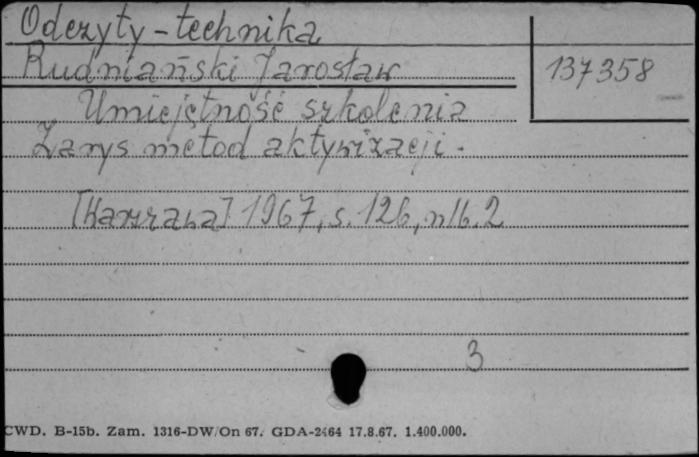 Odczyty-technika
Rudniański Jarosław
137358
Umiejętność szkolenia
Zarys metod aktywizacji.
[Warszawa] 1967, s. 126, nlb. 2
3
CWD. B-15b. Zam. 1316-DW/On 67. GDA-2464 17.8.67. 1.400.000.